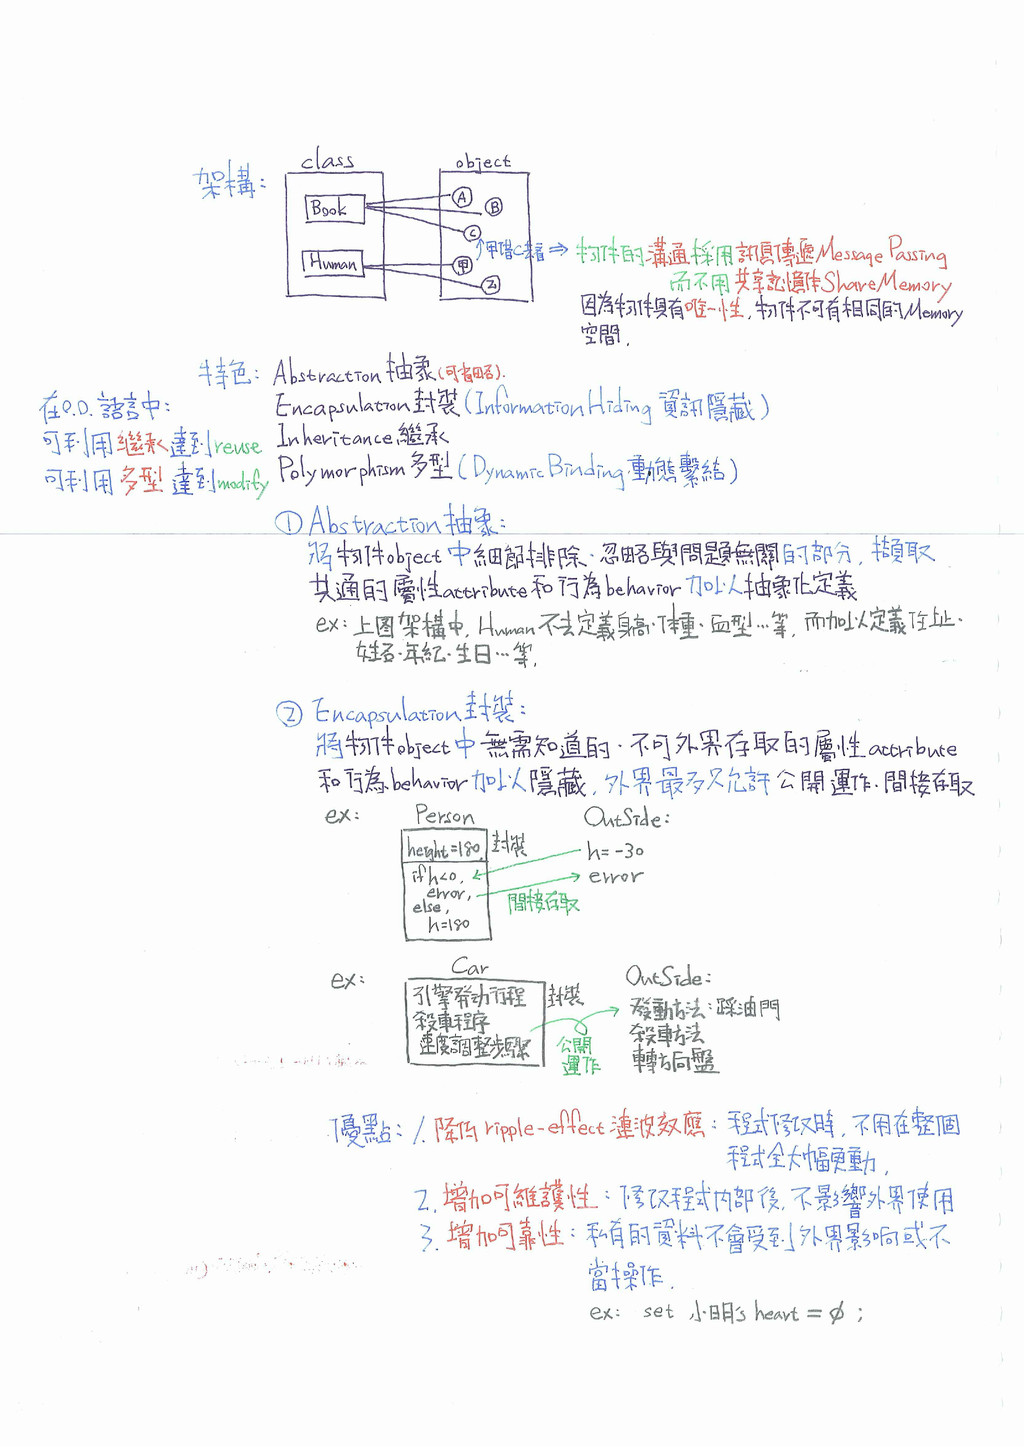 架構:
class
object
Book
Human
A
B
C
甲
乙
甲借C去看 ⇒ 物件的溝通採用訊息傳遞Message Passing
而不用共享記憶体Share Memory
因為物件具有唯一性,物件不可有相同的Memory
空間.
特色: Abstraction 抽象(可省略).
Encapsulation封裝(Information Hiding 資訊隱藏)
Inheritance繼承
Polymorphism多型(Dynamic Binding動態繫結)
在O.O.語言中:
可利用繼承達到reuse
可利用多型達到modify
① Abstraction抽象:
將物件object中細節排除、忽略與問題無關的部分, 擷取
共通的屬性attribute和行為behavior加以抽象化定義
ex: 上图架構中, Human不去定義身高·体重·血型…等, 而加以定義住址·
姓名·年紀·生日…等.
② Encapsulation封裝:
將物件object中無需知道的·不可外界存取的屬性attribute
和行為behavior加以隱藏, 外界最多只允許公開運作·間接存取
ex:
Person
height=180,
封裝
if h<0,
error,
else,
h=180
間接存取
OutSide:
h=-30
error
ex:
Car
引擎発动行程
殺車程序
速度調整步驟
封裝
公開
運作
OutSide:
發動方法:踩油門
殺車方法
轉方向盤
優點: 1. 降低ripple-effect漣波效應: 程式修改時, 不用在整個
程式全大幅更動.
2. 增加可維護性: 修改程式內部後, 不影響外界使用
3. 增加可靠性: 私有的資料不會受到外界影响或不
當操作.
ex: set 小明's heart = ∅ ;